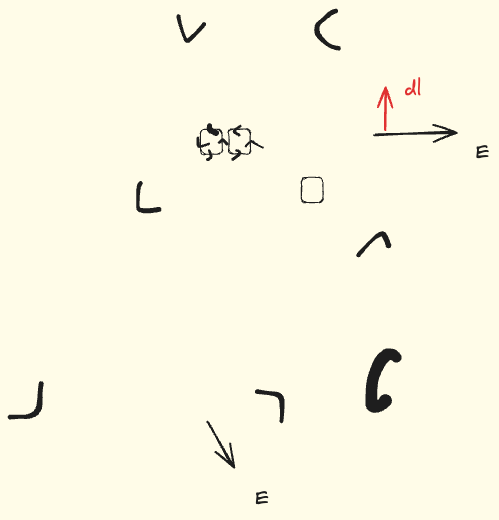 dl
E
E